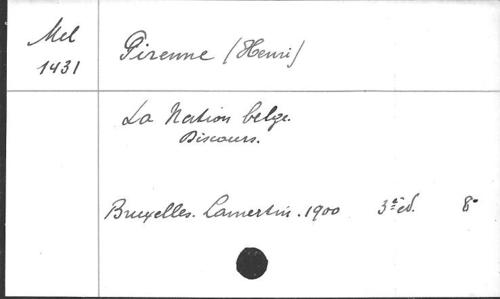 Mel
1431
Pirenne (Henri)
La Nation belge.
Discours.
Bruxelles. Lamertin. 1900 3e éd. 8°